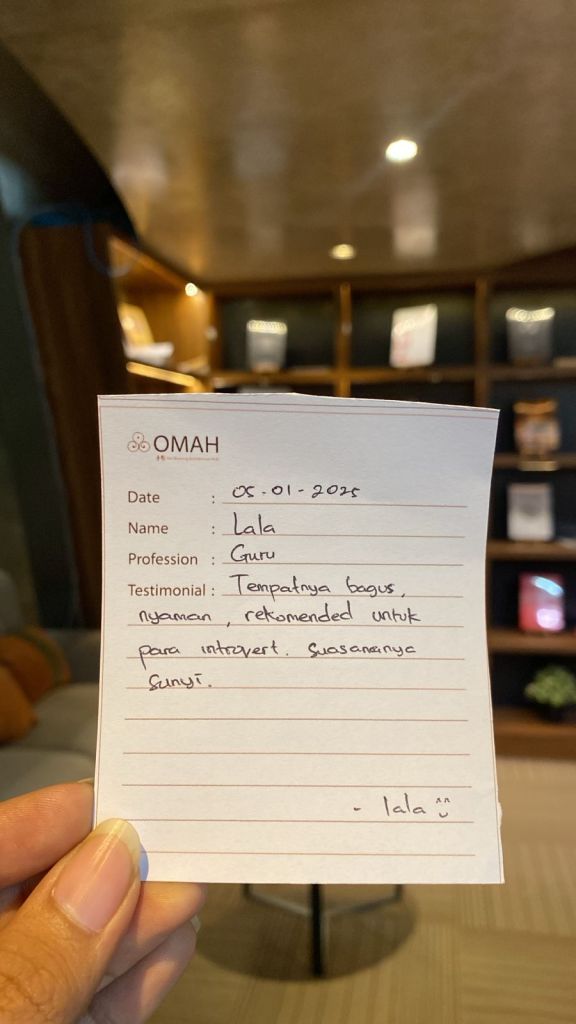 OMAH
Date : 05-01-2025
Name : Lala
Profession : Guru
Testimonial : Tempatnya bagus,
nyaman, rekomended untuk
para introvert. Suasananya
Sunyi.
- lala